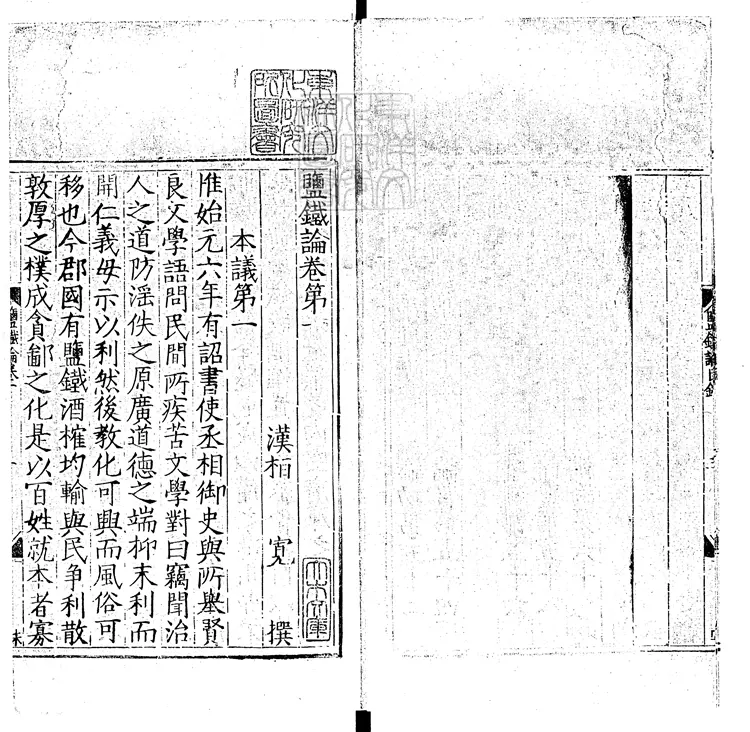 鹽鐵論目錄
東洋文化研究所圖書
鹽鐵論卷第一
漢桓 寬 撰
大木文庫
本議第一
惟始元六年有詔書使丞相御史與所舉賢
良文學語問民間所疾苦文學對曰竊聞治
人之道防淫佚之原廣道德之端抑末利而
開仁義毋示以利然後教化可興而風俗可
移也今郡國有鹽鐵酒榷均輸與民爭利散
敦厚之樸成貪鄙之化是以百姓就本者寡
鹽鐵論卷一